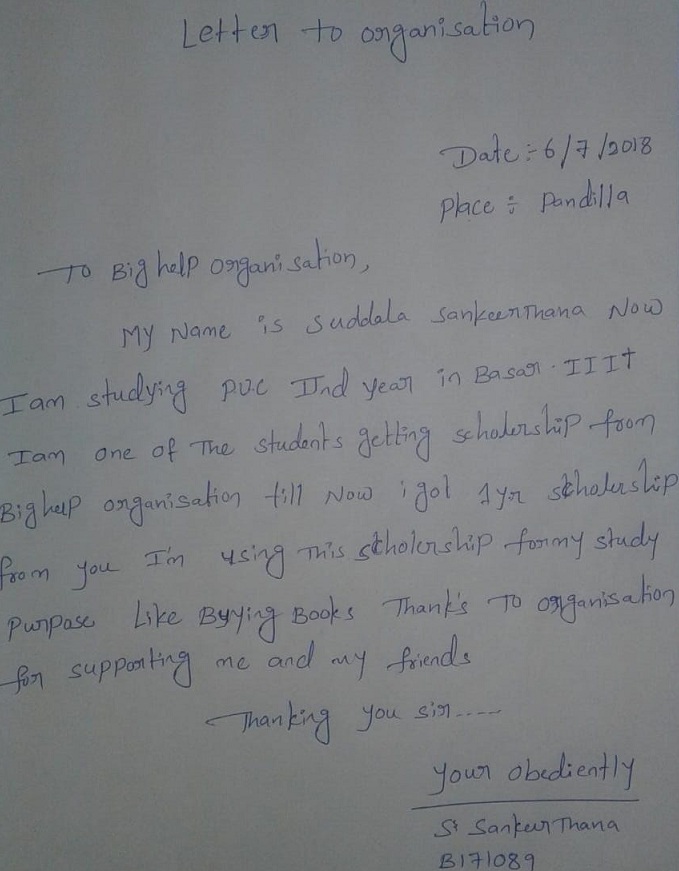 Letter to organisation
Date :- 6/7/2018
Place : Pandilla
To Big help organisation,
My Name is Suddala Sankeerthana Now
I am studying P.U.C IInd year in Basar. IIIT
I am one of The students getting scholership from
Big help organisation till Now i got 1yr scholership
from you I'm using This scholership for my study
Purpose Like Byying Books Thank's To organisation
for supporting me and my friends
Thanking you sir.....
your obediently
S. SankeerThana
B171089